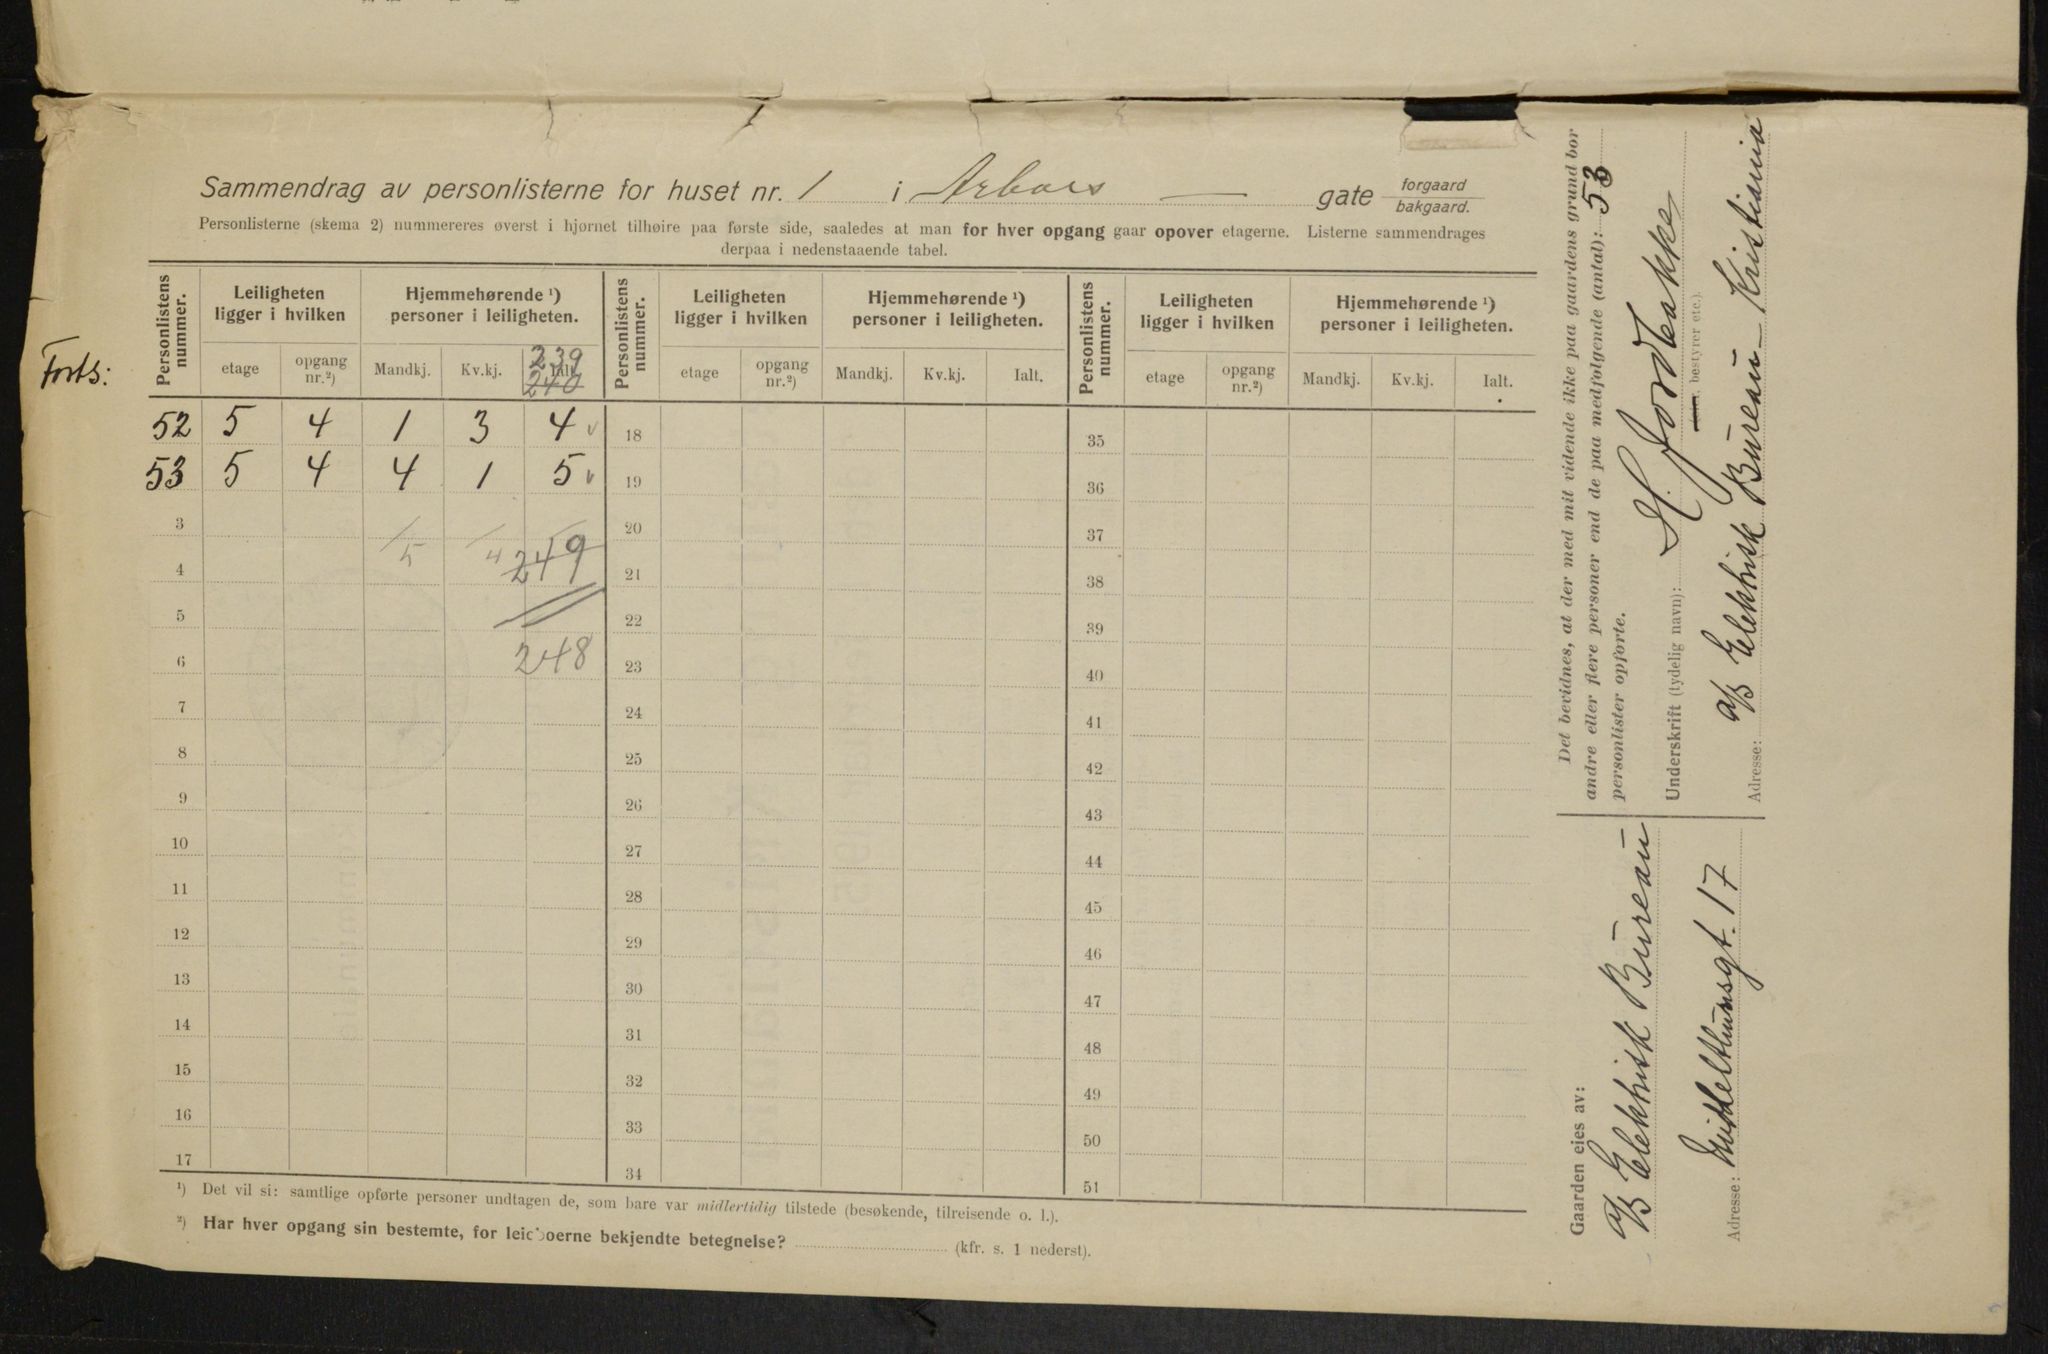 Sammendrag av personlisterne for huset nr. 1 i Arboes gate forgaard bakgaard.
Personlisterne (skema 2) nummereres øverst i hjørnet tilhøire paa første side, saaledes at man for hver opgang gaar opover etagerne. Listerne sammendrages
derpaa i nedenstaaende tabel.
Forts:
Personlistens nummer. Leiligheten ligger i hvilken Hjemmehørende ¹) personer i leiligheten. Personlistens nummer. Leiligheten ligger i hvilken Hjemmehørende ¹) personer i leiligheten. Personlistens nummer. Leiligheten ligger i hvilken Hjemmehørende ¹) personer i leiligheten.
etage opgang nr.²) Mandkj. Kv.kj. Ialt. 239 240 etage opgang nr.²) Mandkj. Kv.kj. Ialt. etage opgang nr.²) Mandkj. Kv.kj. Ialt.
52 5 4 1 3 4 18 35
53 5 4 4 1 5 19 36
3 20 37
4 5 4 249 21 38
5 22 39
6 248 23 40
7 24 41
8 25 42
9 26 43
10 27 44
11 28 45
12 29 46
13 30 47
14 31 48
15 32 49
16 33 50
17 34 51
¹) Det vil si: samtlige opførte personer undtagen de, som bare var midlertidig tilstede (besøkende, tilreisende o. l.).
²) Har hver opgang sin bestemte, for leieboerne bekjendte betegnelse? (kfr. s. 1 nederst).
Det bevidnes, at der med mit vidende ikke paa gaardens grund bor
andre eller flere personer end de paa medfølgende (antal): 53
personlister opførte.
Underskrift (tydelig navn): H. Jordbakke
bestyrer etc.).
Adresse: a/s Elektrisk Bureau Kristiania
Gaarden eies av:
a/s Elektrisk Bureau
Adresse: Middelthunsgt. 17